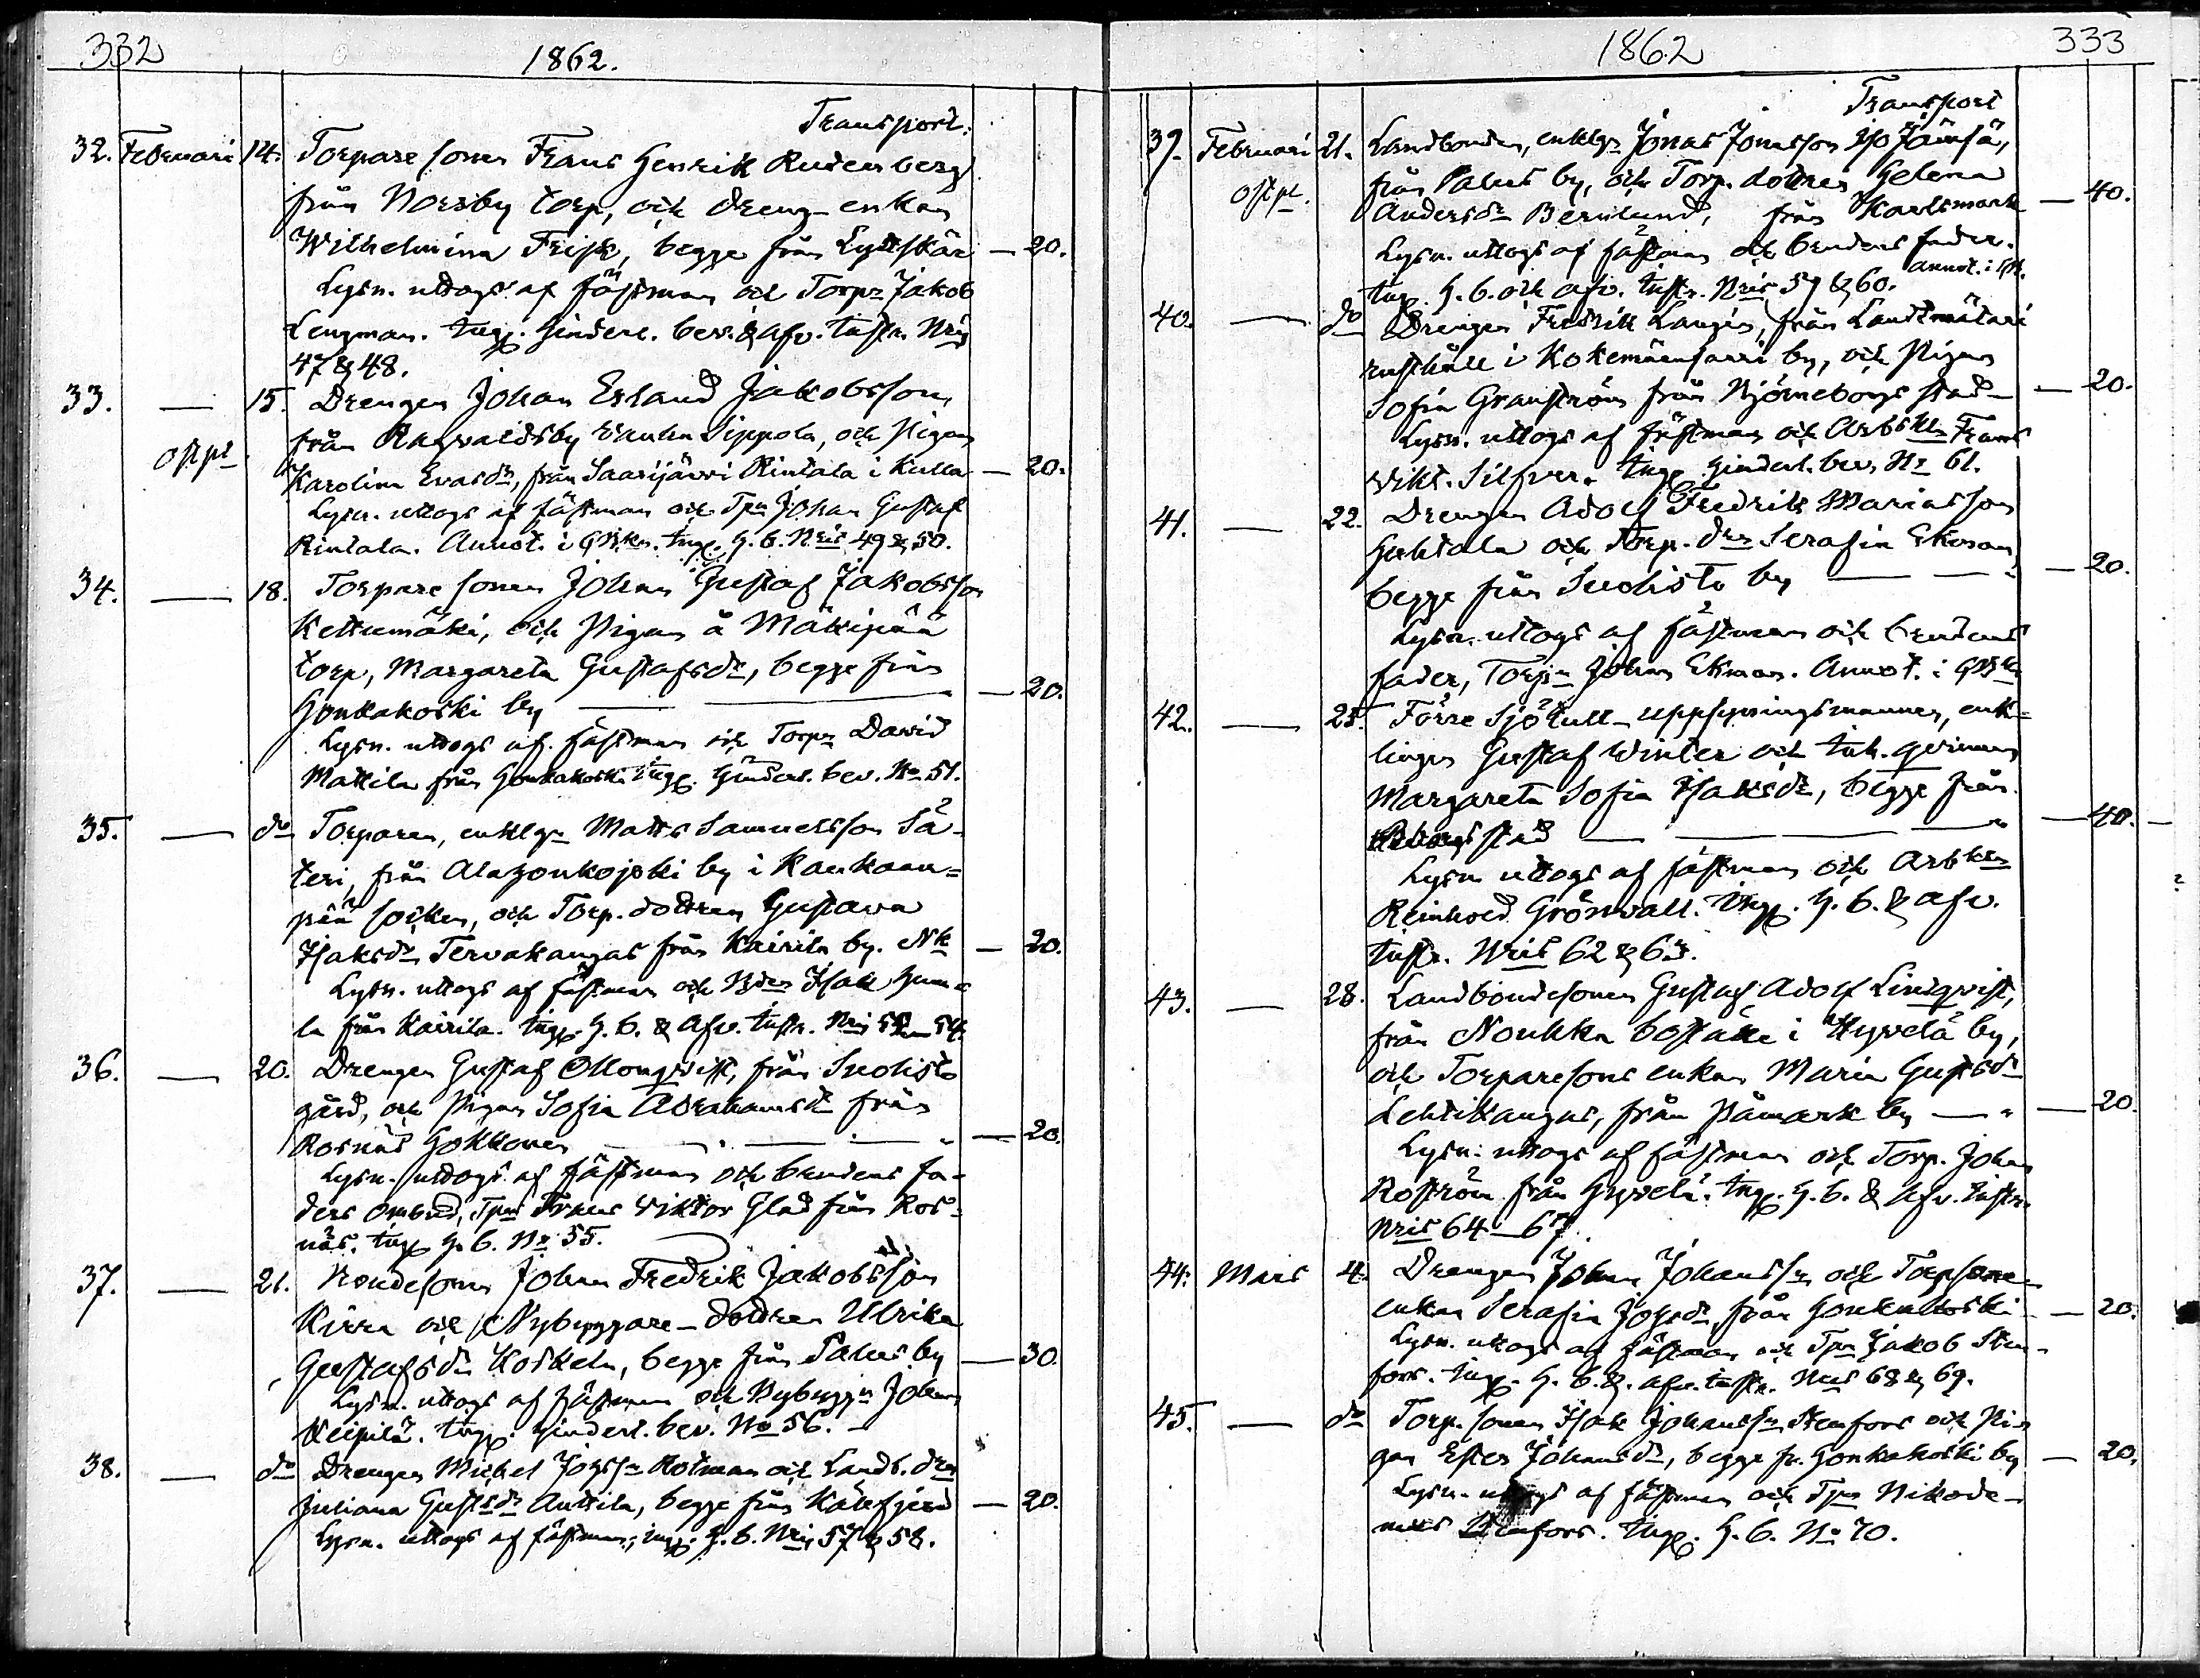 332
1862.
Transport.
32. Februari 14. Torpare sonen Frans Henrik Rudenberg
från Norrby torp, och dreng-enkan
Wilhelmina Frisk, begge från Lyttskär — 20.
Lysn. uttogs af fästman och Torpn Jakob
Lengman. Ingg. Hinderl. bev. & afv. Instr. Nris
47 & 48.
33. — 15. Drengen Johan Erland Jakobsson,
från Ragvaldsby Wanha Sippola, och Pigan
Karolina Evasdr, från Saarijärvi Rintala i Kulla — 20.
Lysn. uttogs af fästman och Tpn Johan Gustaf
Rintala. Annot. i Ingg. H. b. Nris 49 & 50.
34. — 18. Torpare sonen Johan Gustaf Jakobsson
Kettumäki, och Pigan å Mäkipää
torp, Margareta Gustafsdr, begge från
Honkakoski by — 20.
Lysn. uttogs af fästman och Torpn David
Mattila från Honkakoski Ingg. Hinderl. bev. No 51.
35. — do Torparen, enklgn Matts Samuelsson Sä-
teri, från Alahonkajoki by i Kankaan=
pää socken, och Torp. dottren Gustava
Isaksdr Tervakangas från Kairila by. — 20.
Lysn. uttogs af fästman och Isak Hum-
la från Kairila. Ingg. H. b. & Afv. Instr. Nris 54.
36. — 20. Drengen Gustaf Ollonqvist, från Suolisto
gård, och Pigan Sofia Abrahamsdr från
Rosnäs Hokkonen — 20.
Lysn. uttogs af fästman och brudens fa-
ders ombud, Tpn Frans Viktor Glad från Ros-
näs. Ingg H. b. No 55.
37. — 21. Bondesonen Johan Fredrik Jakobsson
Kirra och Nybyggare-dottren Ulrika
Gustafsdr Koskela, begge från Pahus by — 30.
Lysn. uttogs af fästman och Nybyggn Johan
Keipilä. Ingg. Hinderl. bev. No 56. —
38. — do Drengen Michel Johssn Rotman och Landb. drn
Juliana Gustsdr Anttila, begge från Källfjerd — 20.
Lysn. uttogs af fästman, ingg. H. b. Nris 57 & 58.
1862
333
Transport
39. Februari 21. Landbonden, enklgn Jonas Jonasson Iso Jämsä,
från Pahus by, och Torp. dottren Helena
Andersdr Bernlund, från Karlsmark — 40.
Lysn. uttogs af fästman och brudens fader.
Ingg. H. b. och afv. Instr. Nris 59 & 60. annot. i
40. — do Drengen Fredrik Langén, från Landtmätari
rusthåll i Kokemäensaari by, och Pigan
Sofia Granström från Björneborgs stad — 20.
Lysn. uttogs af fästman och Arbskn Frans
Vikt. Silfver. Ingg Hinderl. bev. No 61.
41. — 22. Drengen Adolf Fredrik Mariasson
Huhtala och Torp. drn Serafia Ekman
begge från Suolisto by — 20.
Lysn. uttogs af fästman och brudens
fader, Torpn Johan Ekman. Annot. i
42. — 25. Förre Sjötull-uppsyningsmannen, enk-
lingen Gustaf Winter och Inh. qvinnan
Margareta Sofia Isaksdr, begge från
stad — 40. —
Lysn uttogs af fästman och Arbkn
Reinhold Grönvall. Ingg. H. b. & afv.
Instr. Nris 62 & 63.
43. — 28. Landbondesonen Gustaf Adolf Lindqvist,
från Noukka boställe i Hyvelä by,
och Torparesons enkan Maria Gustsdr
Lehtikangas, från Påmark by — 20.
Lysn. uttogs af fästman och Torp. Johan
Roström från Hyvelä. Ingg. H. b. & Afv. Instr.
Nris 64—67.
44. Mars 4. Drengen Johan Johanssn och Torpsons
enkan Serafia Johsdr, från Honkakoski — 20.
Lysn. uttogs af fästman och Tpn Jakob Sten-
fors. Ingg. H. b. & afv. instr. Nris 68 & 69.
45. — do Torp. sonen Isak Johanssn Stenfors och Pi-
gan Ester Johansdr, begge fr. Honkakoski by — 20.
Lysn. uttogs af fästman och Tpn Nikode-
mus Stenfors. Ingg. H. b. No 70.